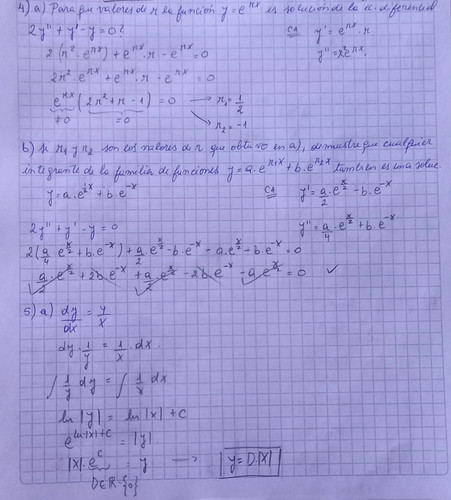 4) a) Para que valores de r la función y = e^{rx} es solución de la ec. diferencial
2y'' + y' - y = 0?
CA y' = e^{rx}.r
2(r².e^{rx}) + e^{rx}.r - e^{rx} = 0
y'' = r².e^{rx}.
2r².e^{rx} + e^{rx}.r - e^{rx} = 0
e^{rx}(2r² + r - 1) = 0 → r₁ = 1/2
≠0 =0
→ r₂ = -1
b) si r₁ y r₂ son los valores de r que obtuvo en a), demuestre que cualquier
integrante de la familia de funciones y = a.e^{r₁x} + b.e^{r₂x} también es una soluc.
y = a.e^{½x} + b.e^{-x}
CA y' = a/2.e^{x/2} - b.e^{-x}
2y'' + y' - y = 0
y'' = a/4.e^{x/2} + b.e^{-x}
2(a/4 e^{x/2} + b.e^{-x}) + a/2.e^{x/2} - b.e^{-x} - a.e^{x/2} - b.e^{-x} = 0
a/2.e^{x/2} + 2b.e^{-x} + a/2.e^{x/2} - 2b.e^{-x} - a.e^{x/2} = 0 ✓
5) a) dy/dx = y/x
dy.1/y = 1/x.dx
∫ 1/y dy = ∫ 1/x dx
ln|y| = ln|x| + C
e^{ln|x|+C} = |y|
|x|.e^C = y → y = D.|x|
D∈ℝ-{0}